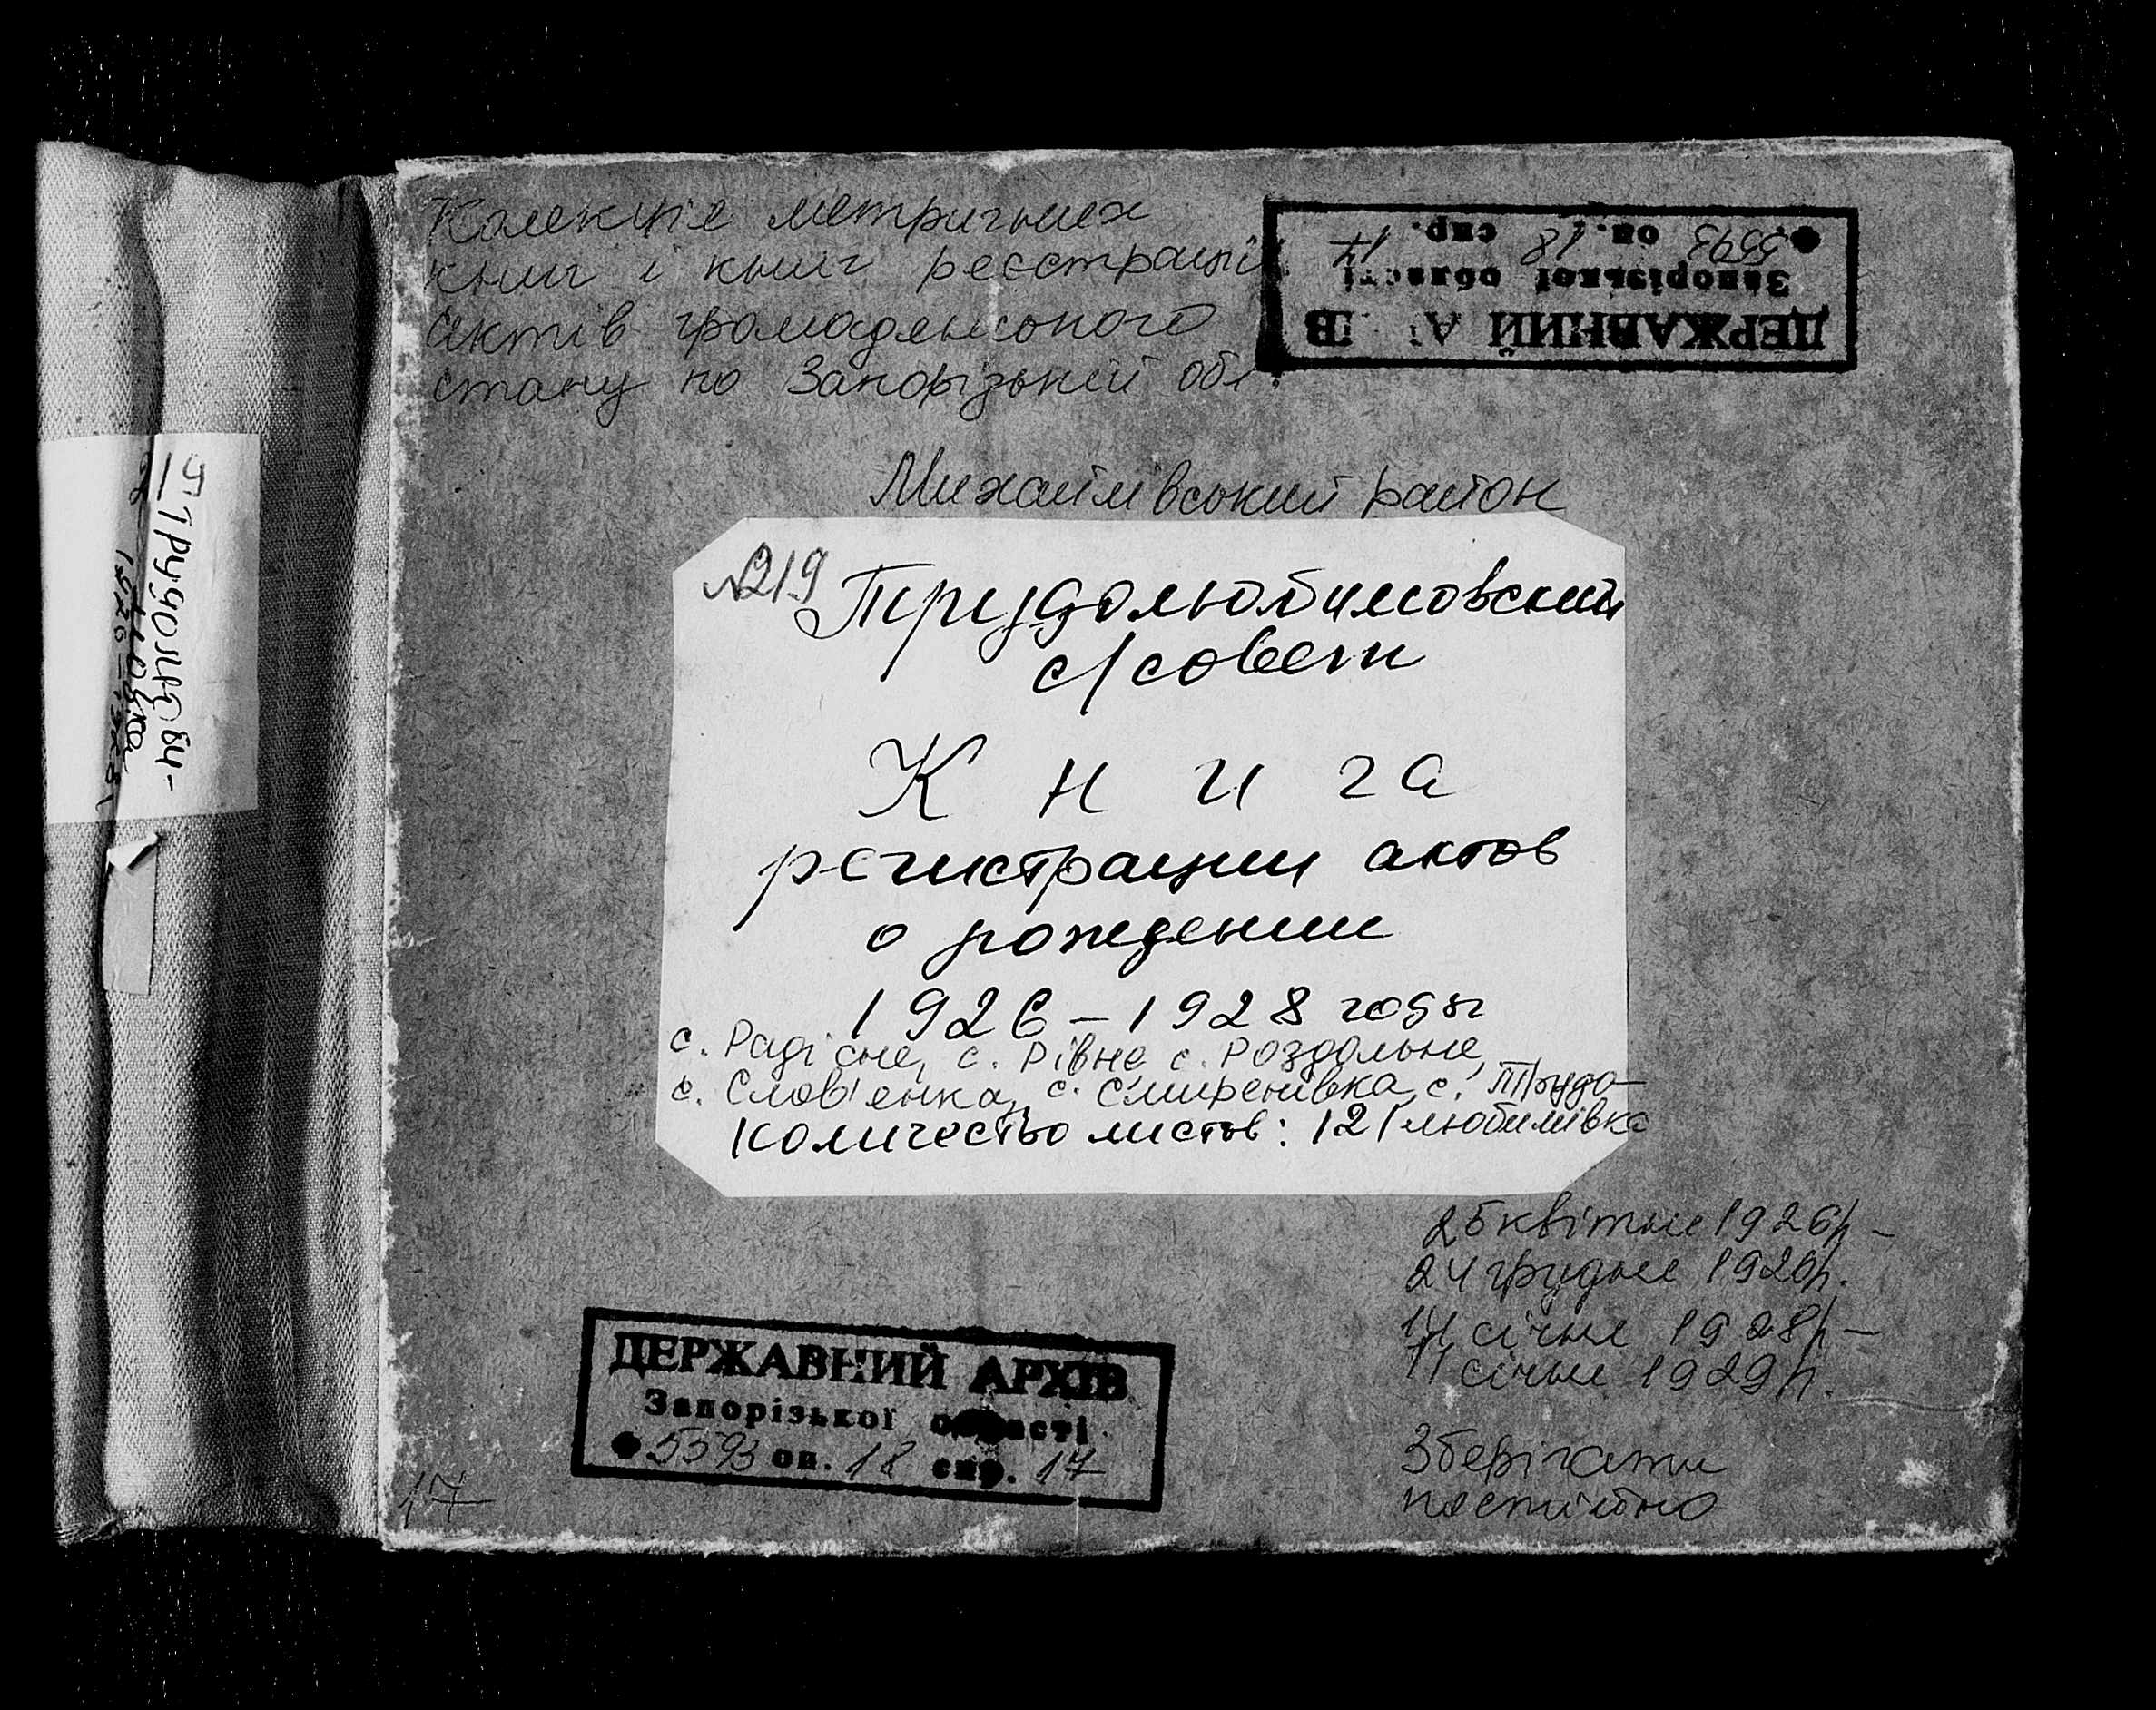 Колекція метричних
книг і книг реєстрації
актів громадянського
стану по Запорізькій обл.
ДЕРЖАВНИЙ
Запорізької області
5593 оп. 18 спр. 17
Михайлівський район
№219 Трудолюбимовский
с/совет
Книга
регистрации актов
о рождении
1926-1928 годы
с. Радісне, с. Рівне с. Роздольне,
с. Слов'янка, с. Смиренівка, с. Трудо-
любимівка
Количество листов: 121
25 квітня 1926р –
24 грудня 1926р.
14 січня 1928р –
11 січня 1929р.
Зберігати
постійно
ДЕРЖАВНИЙ АРХІВ
Запорізької області
5593 оп. 18 спр. 17
17
Трудолюби-
мовка